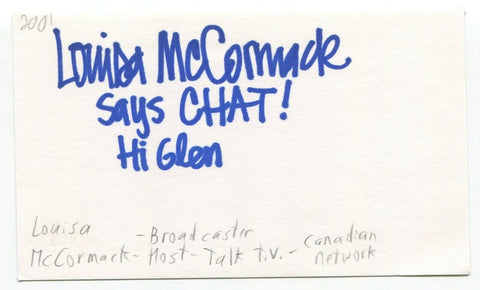 2001
Louisa McCormack
says CHAT!
Hi Glen
Louisa - Broadcaster
McCormack - Host - Talk T.V. - Canadian Network